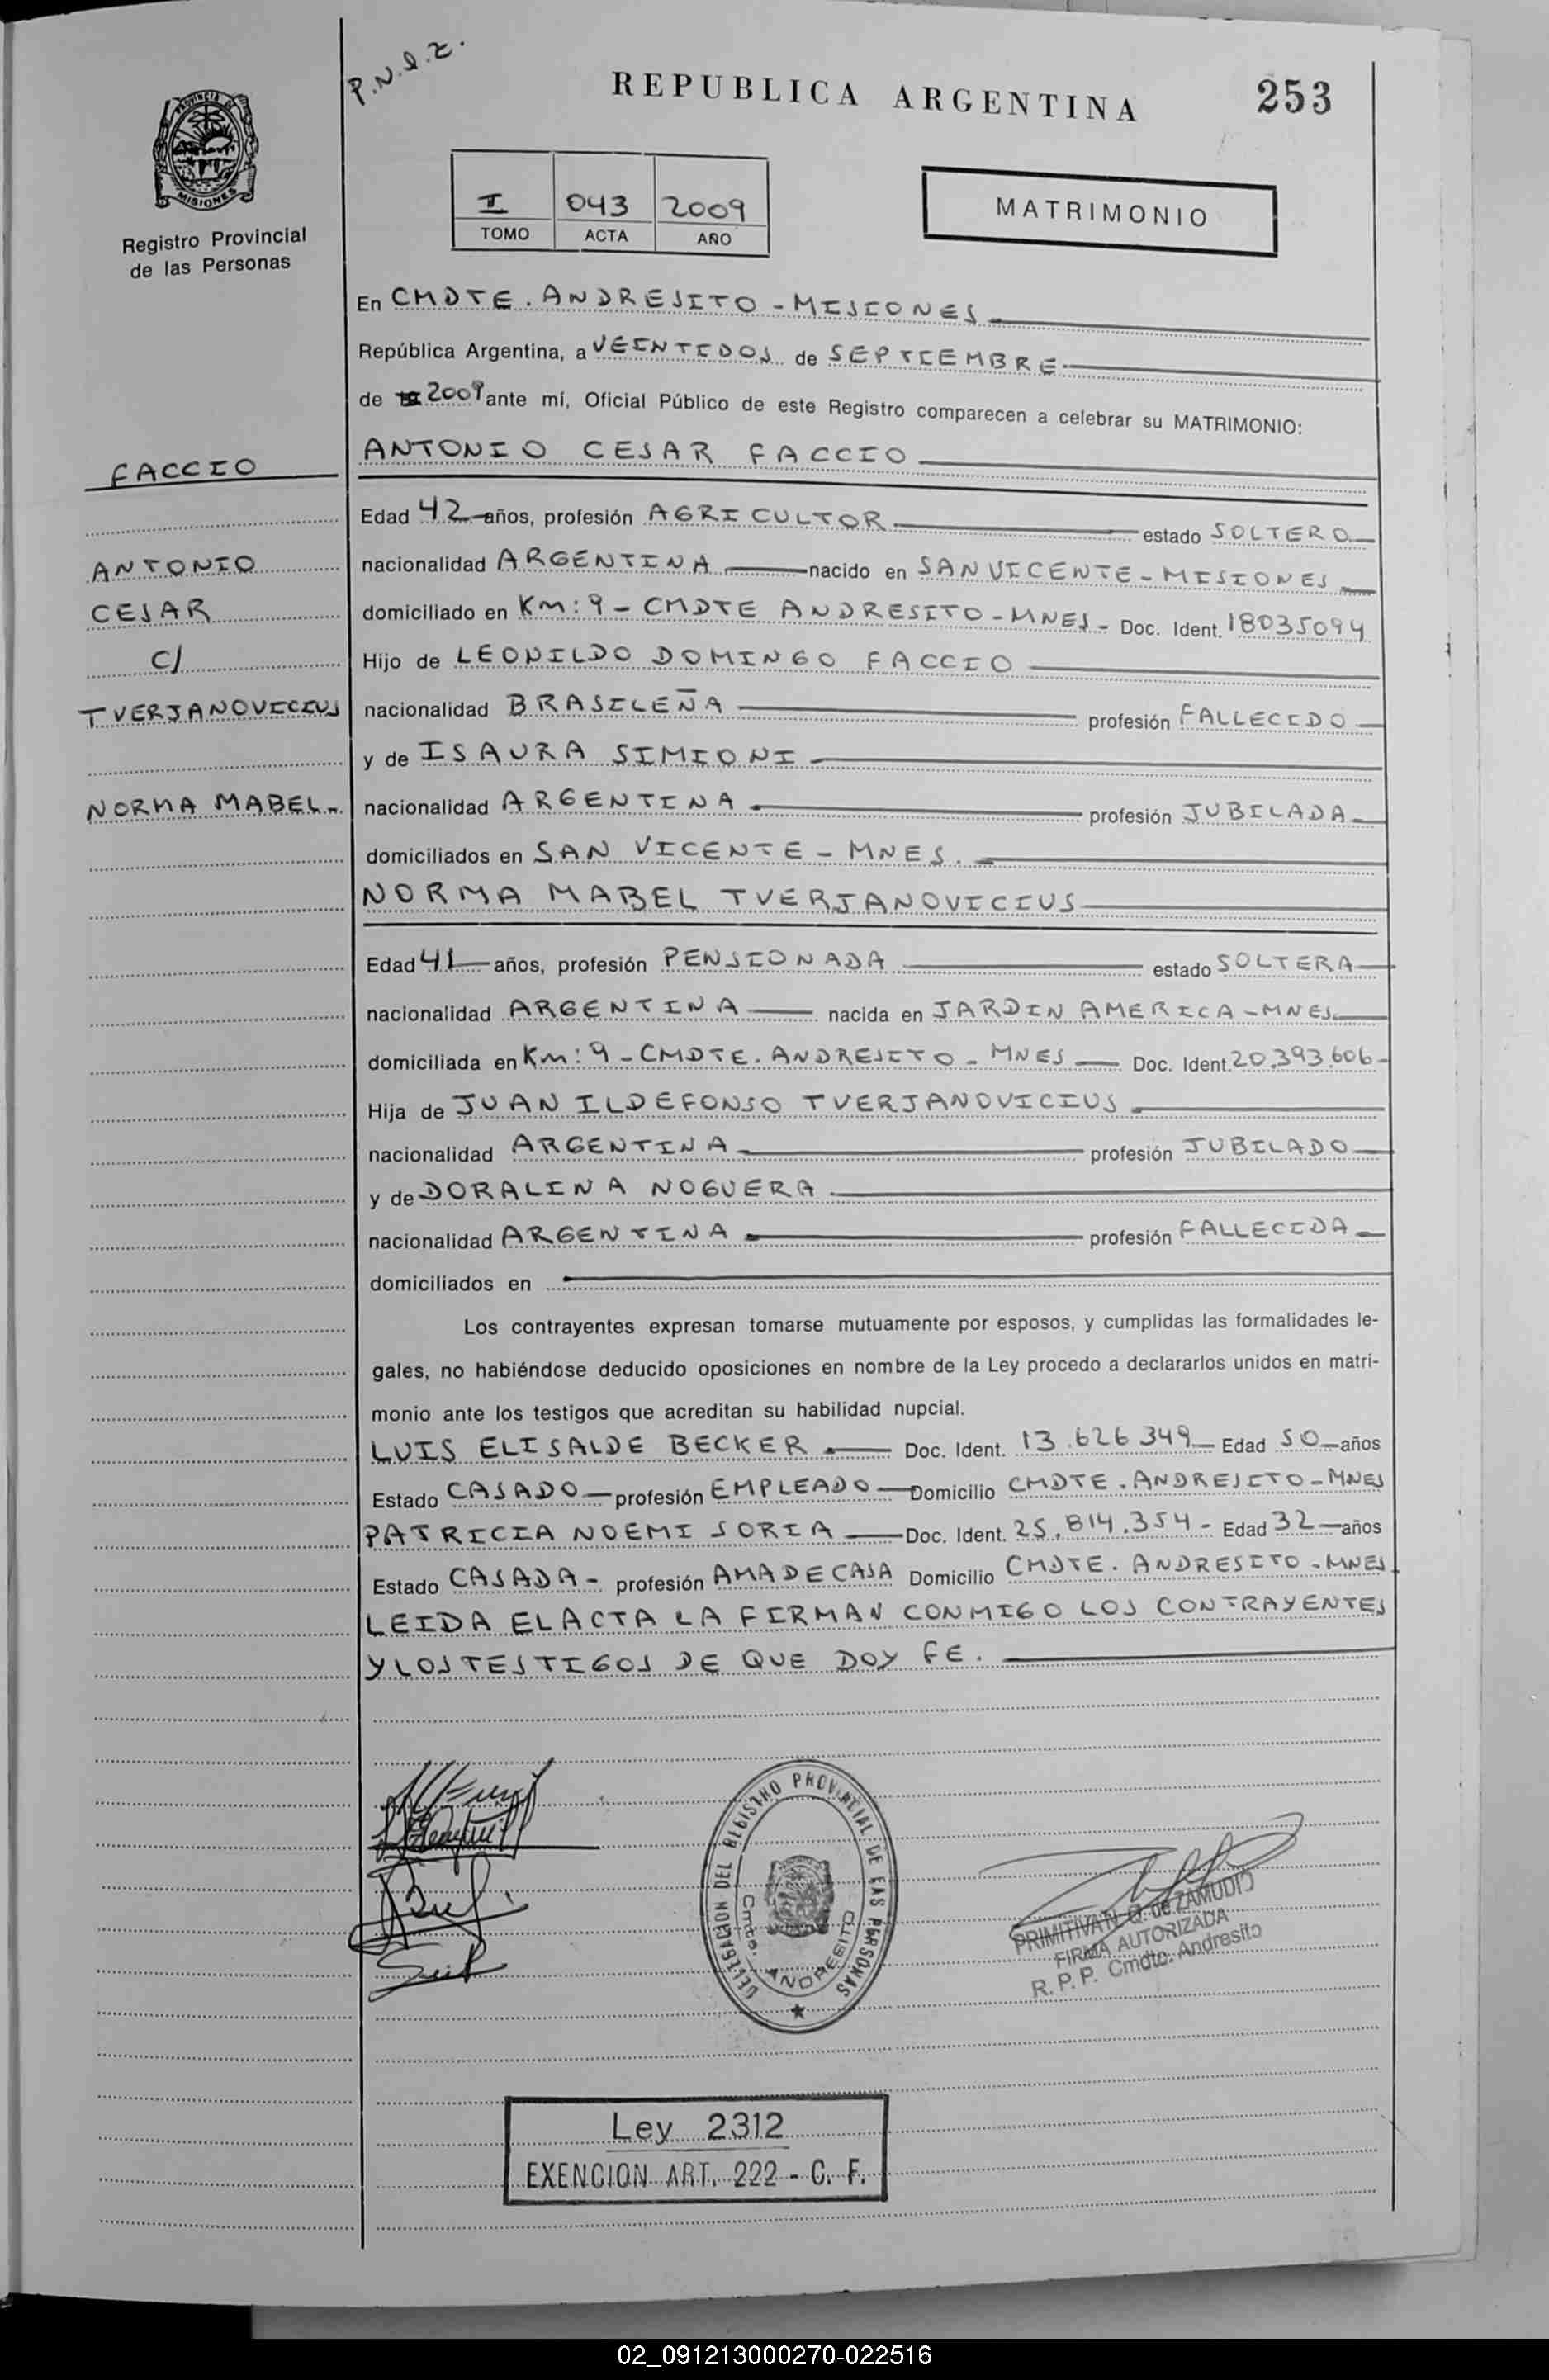 P.N.Q.Z.
REPUBLICA ARGENTINA
253
PROVINCIA DE
MISIONES
Registro Provincial
de las Personas
I 043 2009
TOMO ACTA AÑO
MATRIMONIO
En CMDTE. ANDRESITO - MISIONES
República Argentina, a VEINTIDOS de SEPTIEMBRE
de 2009 ante mí, Oficial Público de este Registro comparecen a celebrar su MATRIMONIO:
FACCIO
ANTONIO CESAR FACCIO
Edad 42 años, profesión AGRICULTOR estado SOLTERO
ANTONIO
nacionalidad ARGENTINA nacido en SAN VICENTE - MISIONES
CESAR
domiciliado en Km: 9 - CMDTE ANDRESITO - MNES - Doc. Ident. 18035094
C/
Hijo de LEONILDO DOMINGO FACCIO
TVERJANOVICIUS
nacionalidad BRASILEÑA profesión FALLECIDO
y de ISAURA SIMIONI
NORMA MABEL..
nacionalidad ARGENTINA profesión JUBILADA
domiciliados en SAN VICENTE - MNES.
NORMA MABEL TVERJANOVICIUS
Edad 41 años, profesión PENSIONADA estado SOLTERA
nacionalidad ARGENTINA nacida en JARDIN AMERICA - MNES
domiciliada en Km: 9 - CMDTE. ANDRESITO - MNES Doc. Ident. 20.393.606 -
Hija de JUAN ILDEFONSO TVERJANOVICIUS
nacionalidad ARGENTINA profesión JUBILADO
y de DORALINA NOGUERA
nacionalidad ARGENTINA profesión FALLECIDA
domiciliados en
Los contrayentes expresan tomarse mutuamente por esposos, y cumplidas las formalidades le-
gales, no habiéndose deducido oposiciones en nombre de la Ley procedo a declararlos unidos en matri-
monio ante los testigos que acreditan su habilidad nupcial.
LUIS ELISALDE BECKER Doc. Ident. 13.626 349 Edad 50 años
Estado CASADO profesión EMPLEADO Domicilio CMDTE. ANDRESITO - MNES
PATRICIA NOEMI SORIA Doc. Ident. 25.814.354 - Edad 32 años
Estado CASADA - profesión AMA DE CASA Domicilio CMDTE. ANDRESITO - MNES
LEIDA EL ACTA LA FIRMAN CONMIGO LOS CONTRAYENTES
Y LOS TESTIGOS DE QUE DOY FE.
DELEGACION DEL REGISTRO PROVINCIAL DE LAS PERSONAS
Cmte. ANDRESITO
PRIMITIVA N. Q. de ZAMUDIO
FIRMA AUTORIZADA
R. P. P. Cmdte. Andresito
Ley 2312
EXENCION ART. 222 - C. F.
02_091213000270-022516